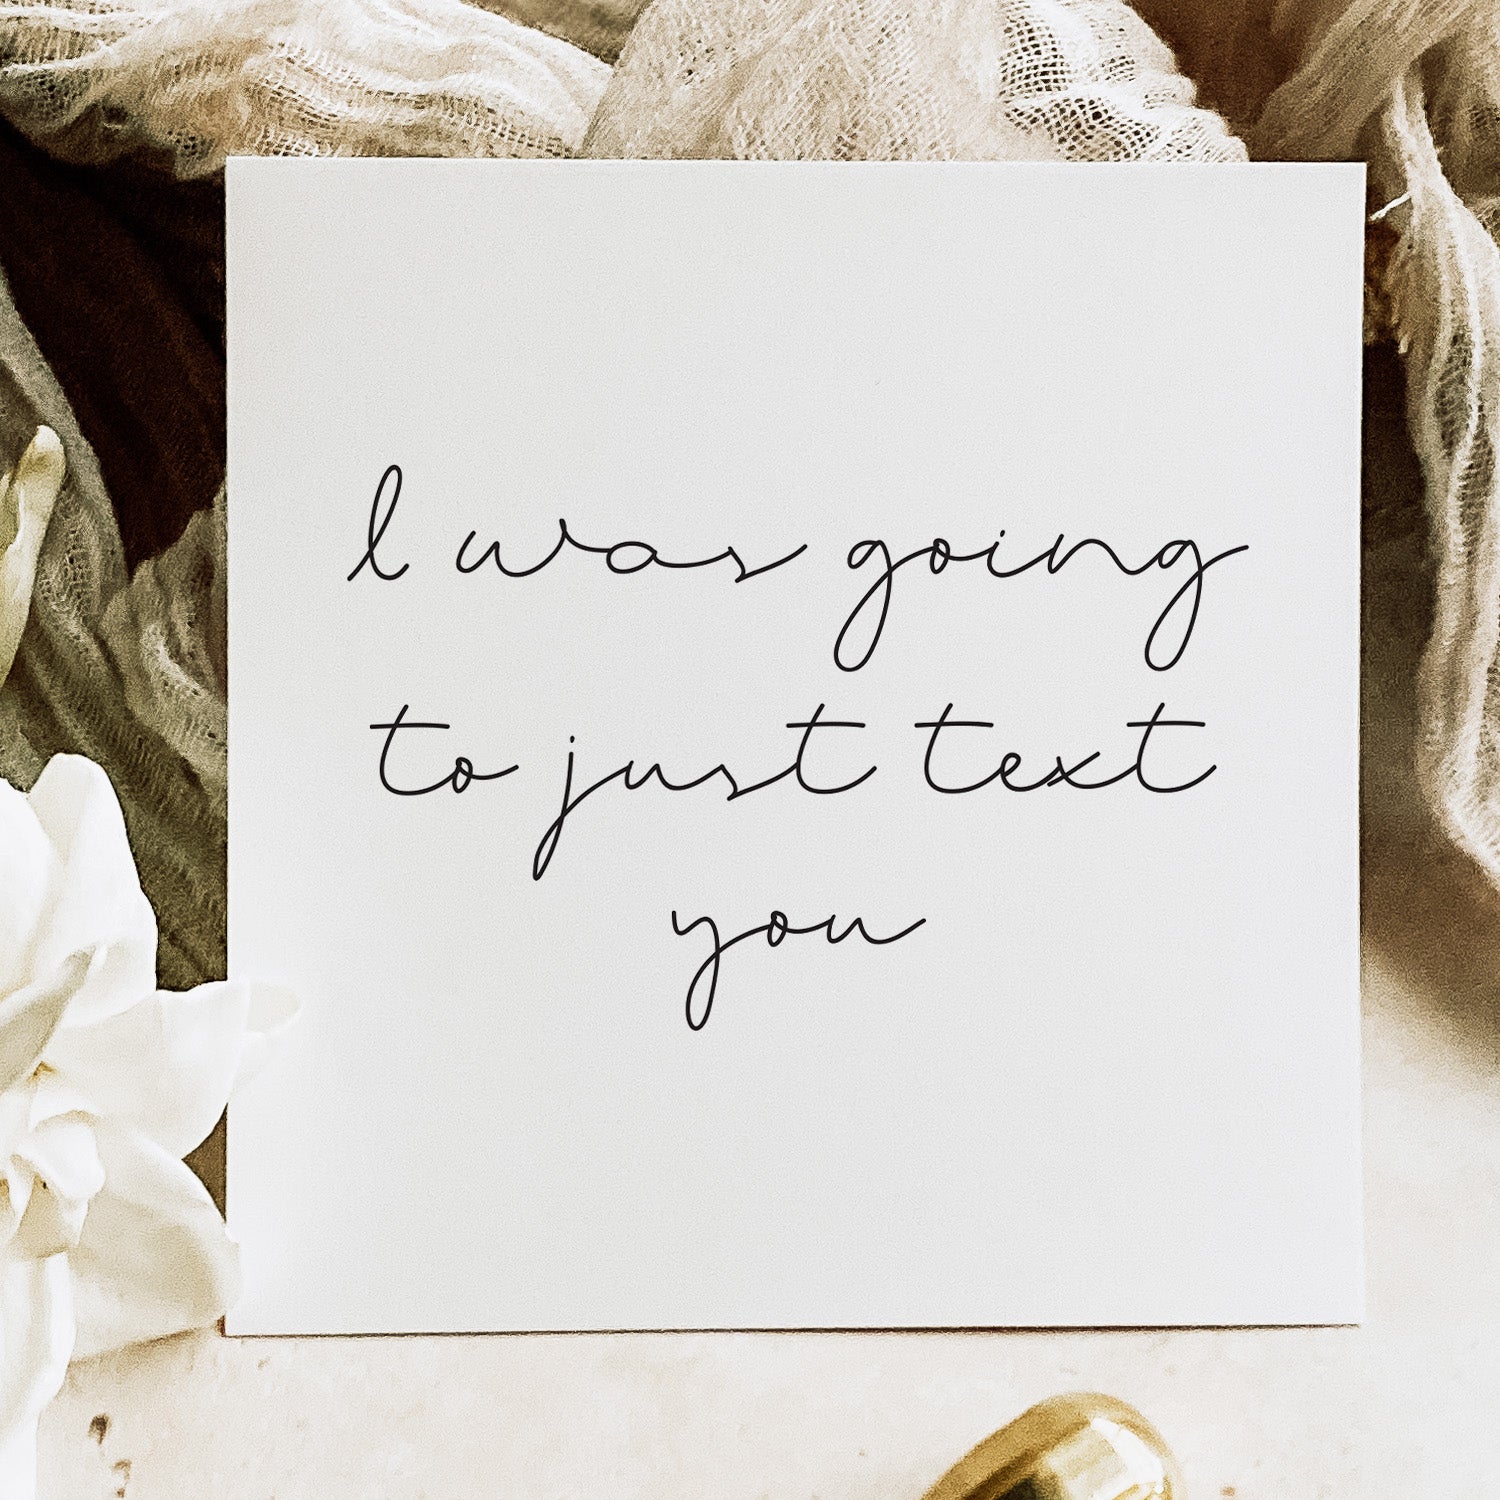 I was going
to just text
you